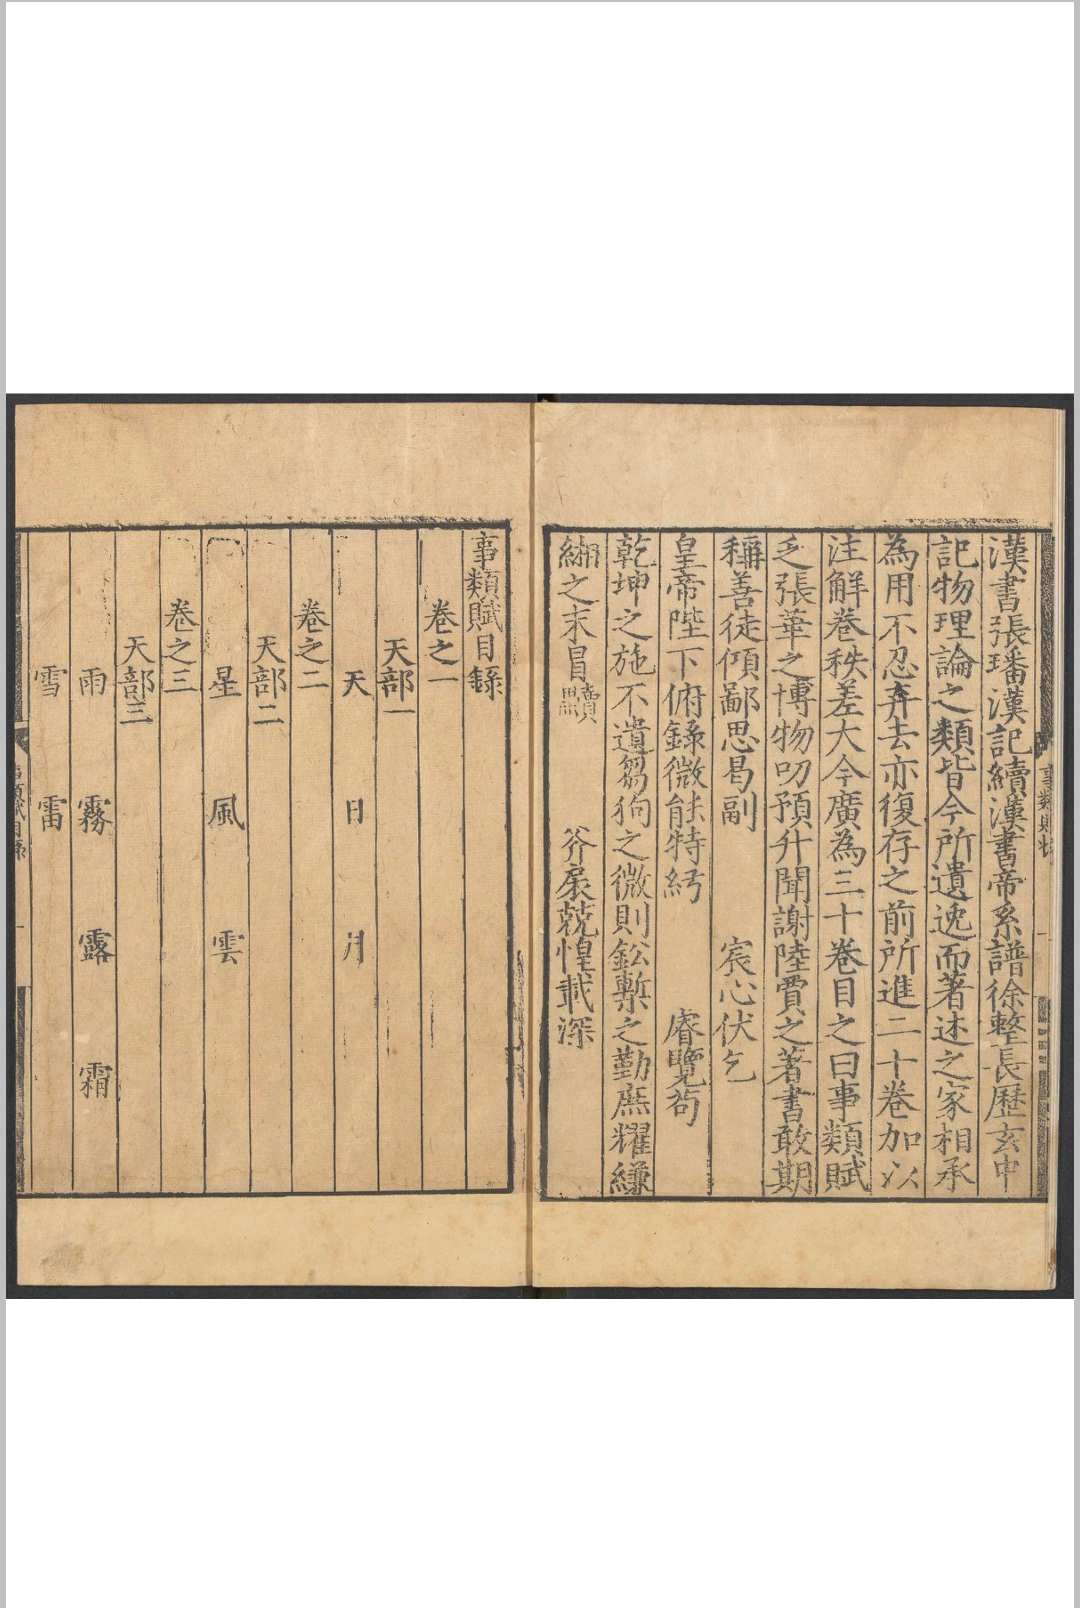 漢書張璠漢記續漢書帝系譜徐整長歷玄中
記物理論之類皆今所遺逸而著述之家相承
為用不忍弃去亦復存之前所進二十卷加以
注解卷秩差大今廣為三十卷目之曰事類賦
乏張華之博物叨預升聞謝陸賈之著書敢期
稱善徒傾鄙思曷副　宸心伏乞
皇帝陛下俯錄微能特紆　睿覽苟
乾坤之施不遺芻狗之微則鈆槧之勤庶耀縑
緗之末冒黷　斧扆兢惶載深
事類賦目錄
卷之一
天部一
天　日　月
卷之二
天部二
星　風　雲
卷之三
天部三
雨　霧　露　霜
雪　雷